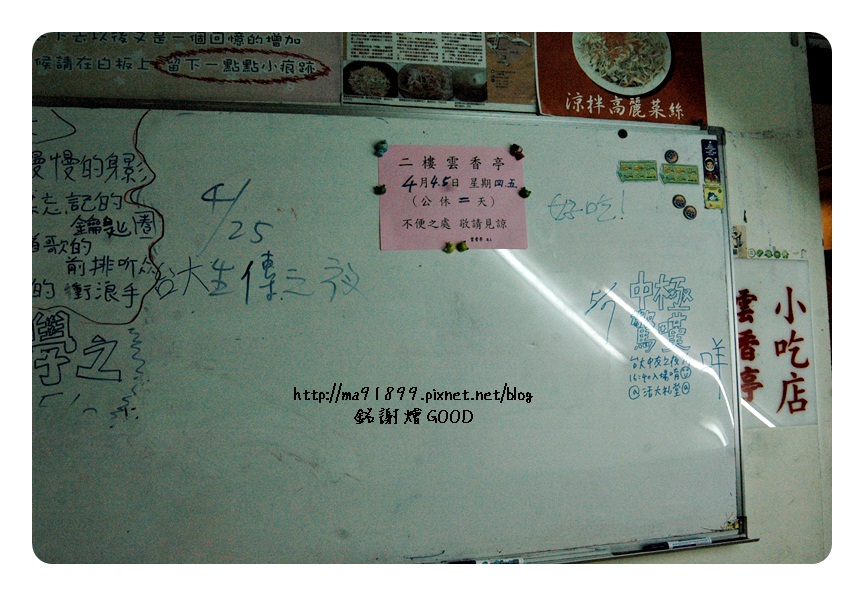 下去以後又是一個回憶的增加
候請在白板上 留下一點點小痕跡
涼拌高麗菜絲
慢慢的身影
忘記的
鑰匙圈
首歌的
前排听众
的 衝浪手
之
4/25
台大生傳之夜
二樓雲香亭
4月4.5日 星期四五
(公休二天)
不便之處 敬請見諒
好吃!
5/7
中極
驚嘆
台大中友之夜
16:40入場唷
活大礼堂
小吃店
雲香亭
http://ma91899.pixnet.net/blog
銘謝燴GOOD